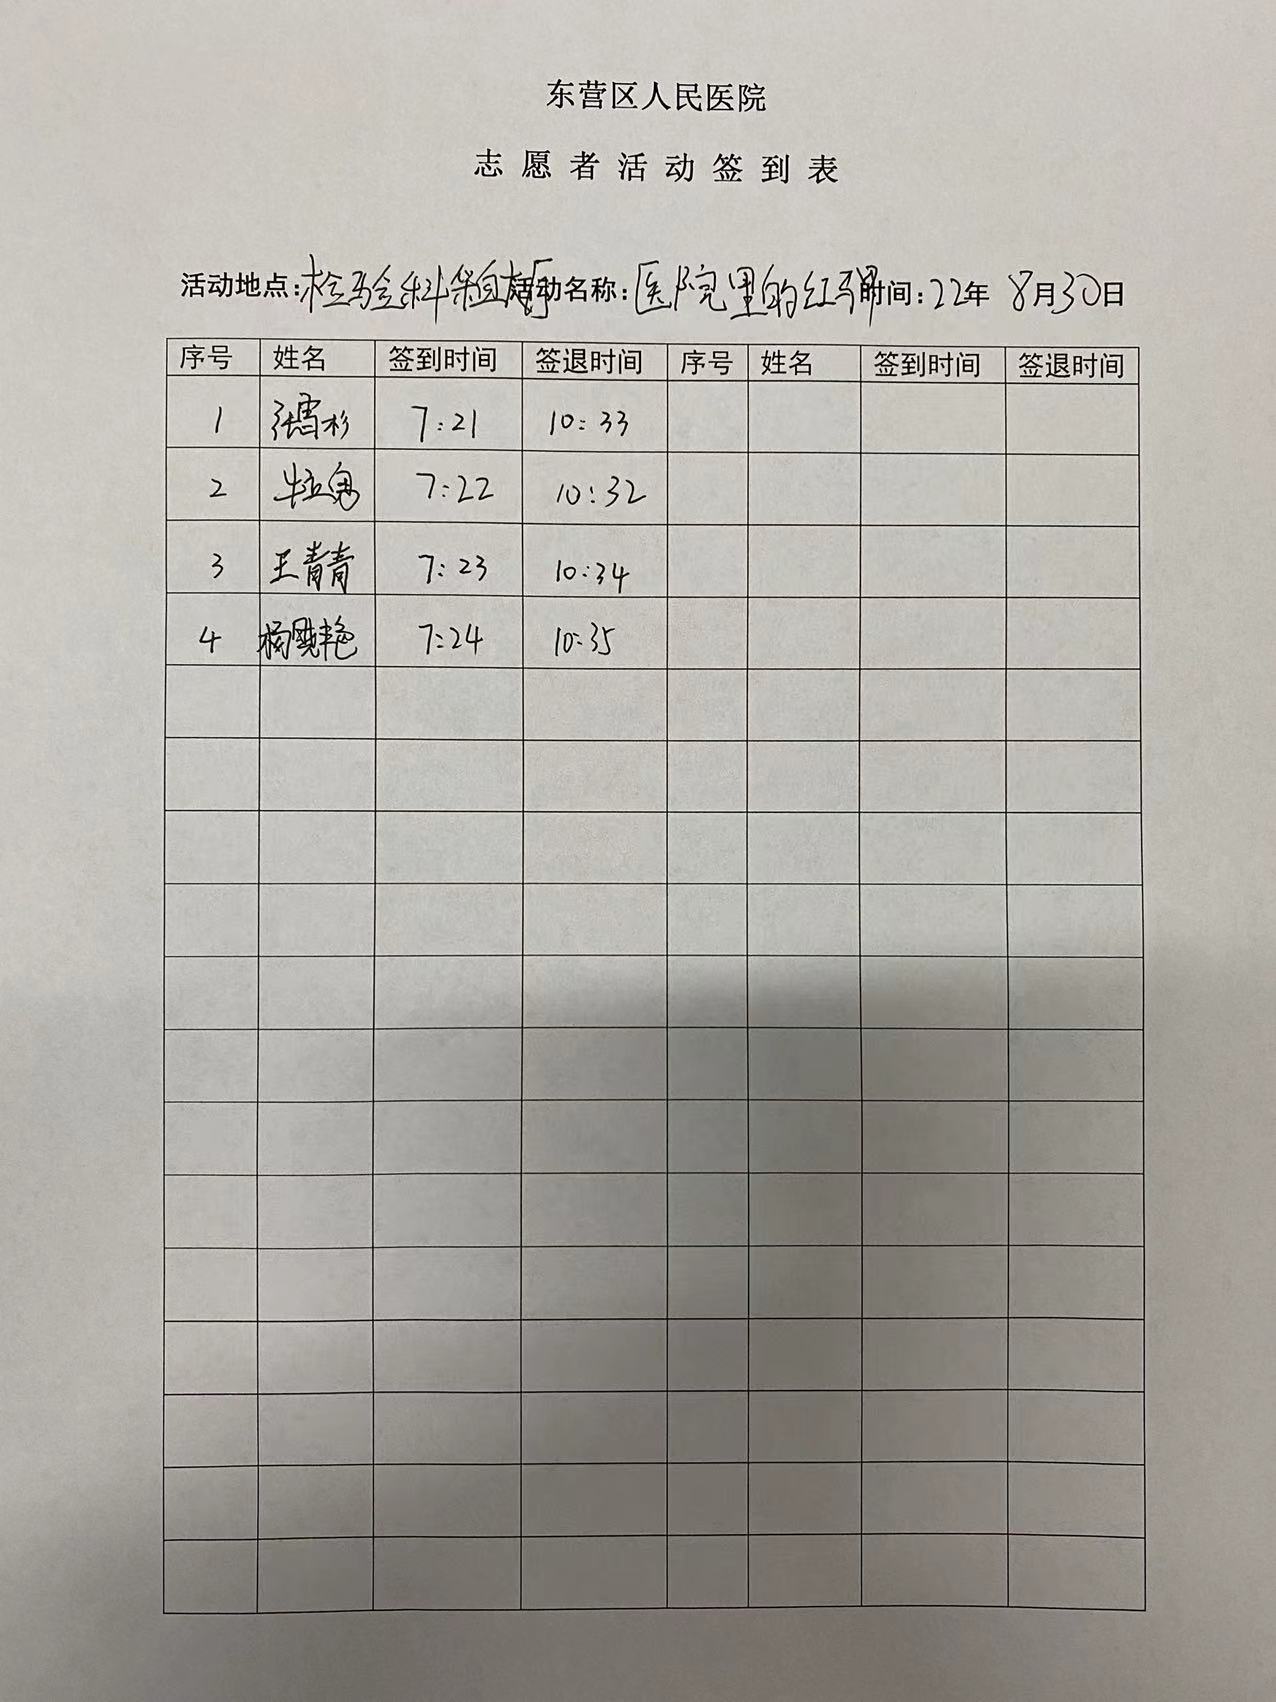 东营区人民医院
志愿者活动签到表
活动地点:检验科 活动名称:医院里的红马甲 时间:22年 8月30日
序号 姓名 签到时间 签退时间 序号 姓名 签到时间 签退时间
1 张雪杉 7:21 10:33
2 7:22 10:32
3 王青青 7:23 10:34
4 杨晓艳 7:24 10:35